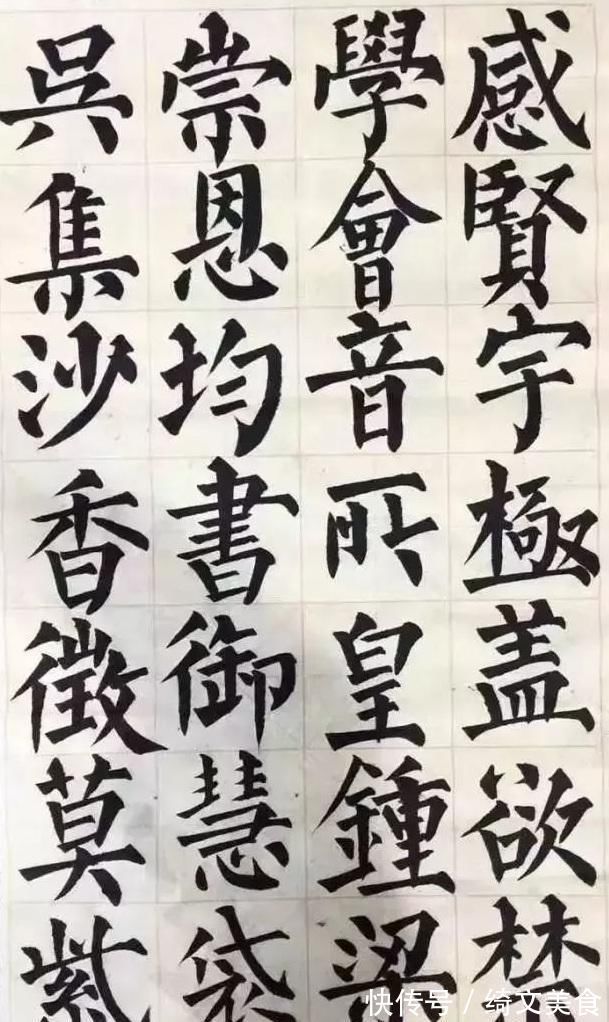 感賢宇極盖欲梵
學會音所皇鍾梁
崇恩均書御慧袋
吳集沙香徵莫紫
快传号/绮文美食